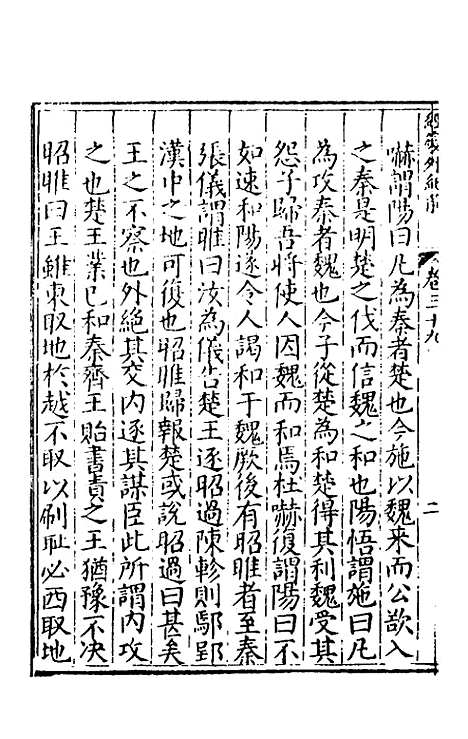 卷三十九
二
嚇謂陽曰凡為秦者楚也今施以魏来而公欲入
之秦是明楚之伐而信魏之和也陽悟謂施曰凡
為攻秦者魏也今子從楚為和楚得其利魏受其
怨子歸吾將使人因魏而和焉杜嚇復謂陽曰不
如速和陽遂令人謁和于魏厥後有昭睢者至秦
張儀謂睢曰汝為儀告楚王逐昭過陳軫則鄢郢
漢中之地可復也昭睢歸報楚或說昭過曰甚矣
王之不察也外絕其交内逐其謀臣此所謂内攻
之也楚王業已和秦齊王貽書責之王猶豫不决
昭睢曰王雖東取地於越不取以刷耻必西取地